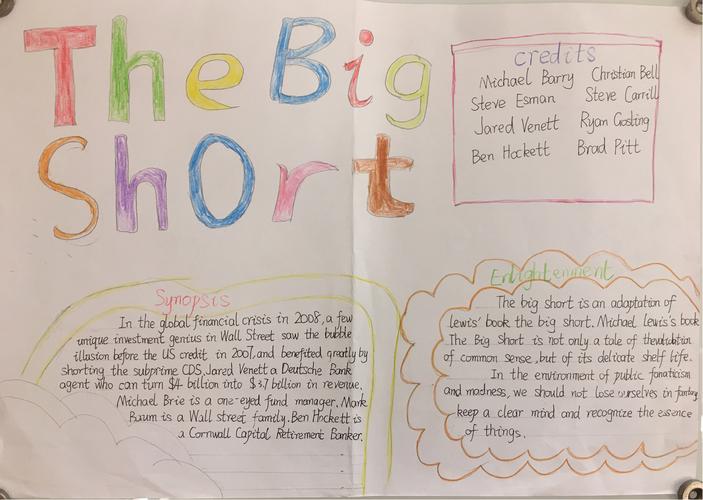 The Big
Short
credits
Michael Barry Christian Bell
Steve Esman Steve Carrill
Jared Venett Ryan Gosling
Ben Hockett Brad Pitt
Synopsis
In the global financial crisis in 2008, a few
unique investment genius in Wall Street saw the bubble
illusion before the US credit in 2007, and benefited greatly by
shorting the subprime CDS. Jared Venett a Deutsche Bank
agent who can turn $4 billion into $3.7 billion in revenue.
Michael Brie is a one-eyed fund manager. Mark
Baum is a Wall street family. Ben Hockett is
a Cornwall Capital Retirement Banker.
Enlightenment
The big short is an adaptation of
Lewis' book the big short. Michael Lewis's book
The Big Short is not only a tale of the
of common sense, but of its delicate shelf life.
In the environment of public fanaticism
and madness, we should not lose ourselves in fantasy,
keep a clear mind and recognize the essence
of things.